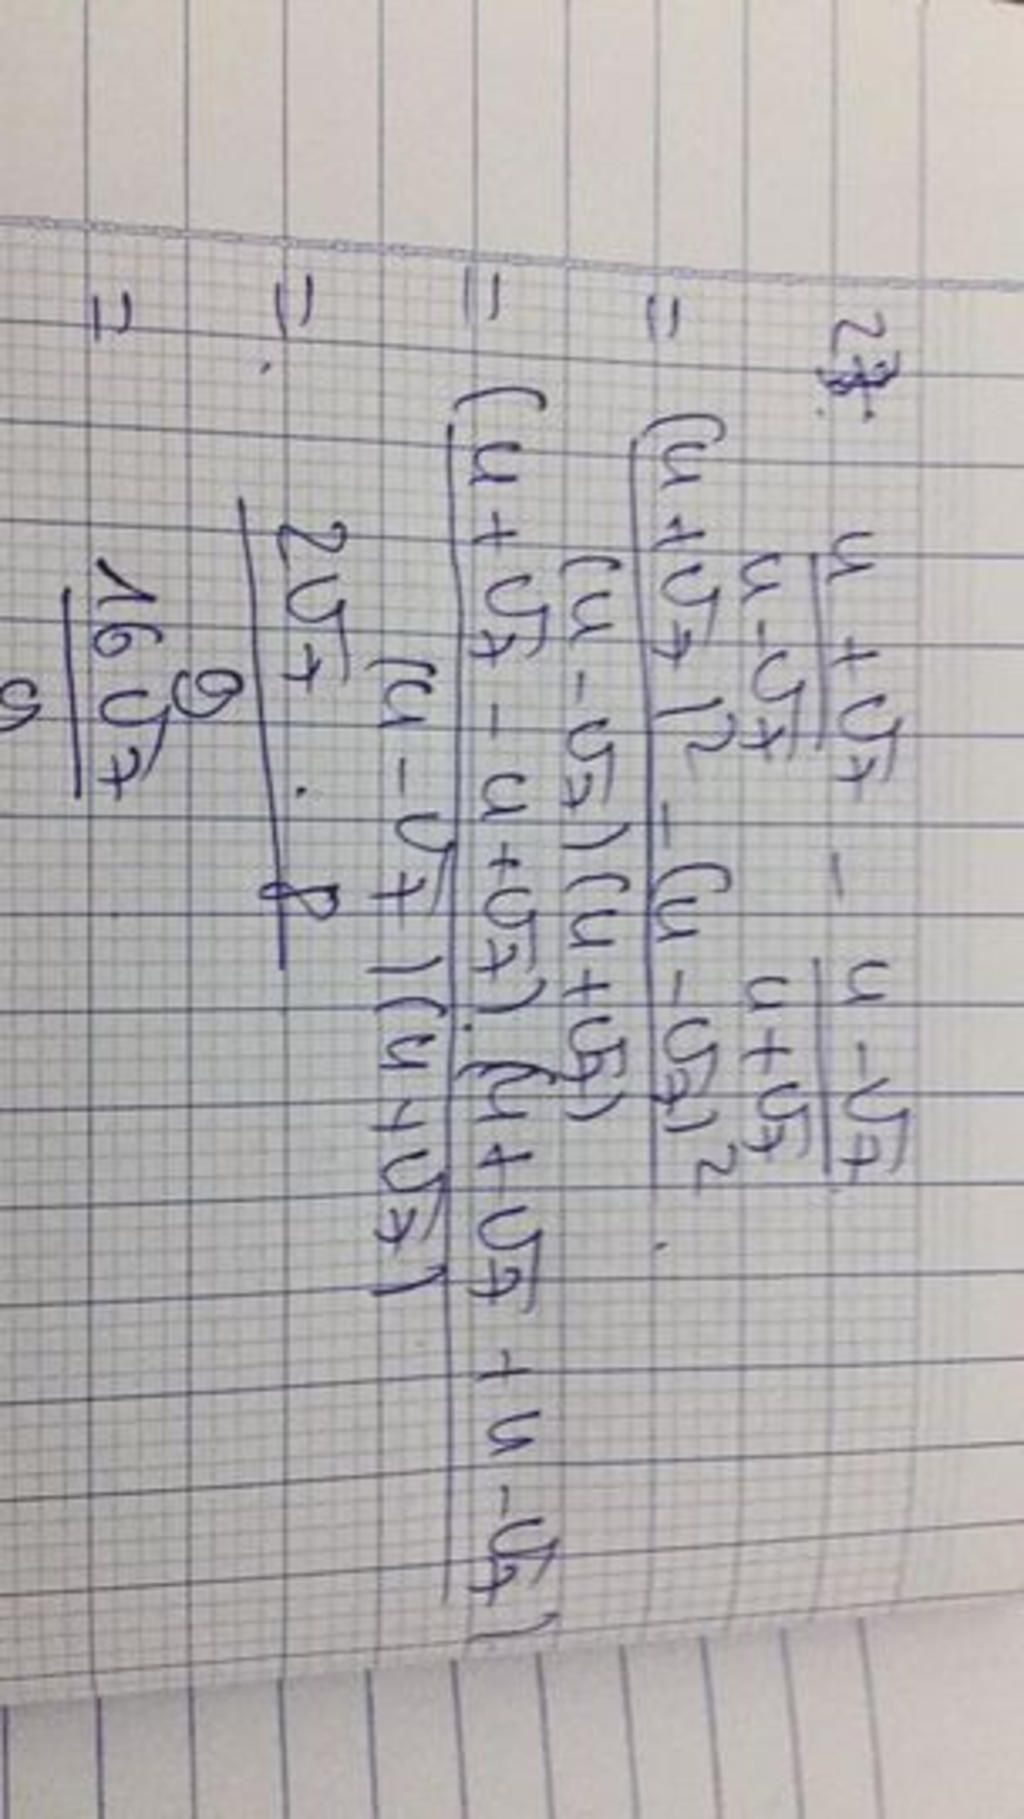 23.
4 + √7 / 4 - √7 - 4 - √7 / 4 + √7
= (4 + √7)² - (4 - √7)² / (4 - √7)(4 + √7)
= (4 + √7 - 4 + √7).(4 + √7 + 4 - √7) / (4 - √7)(4 + √7)
= 2√7 . 8 / 9
= 16√7 / 9